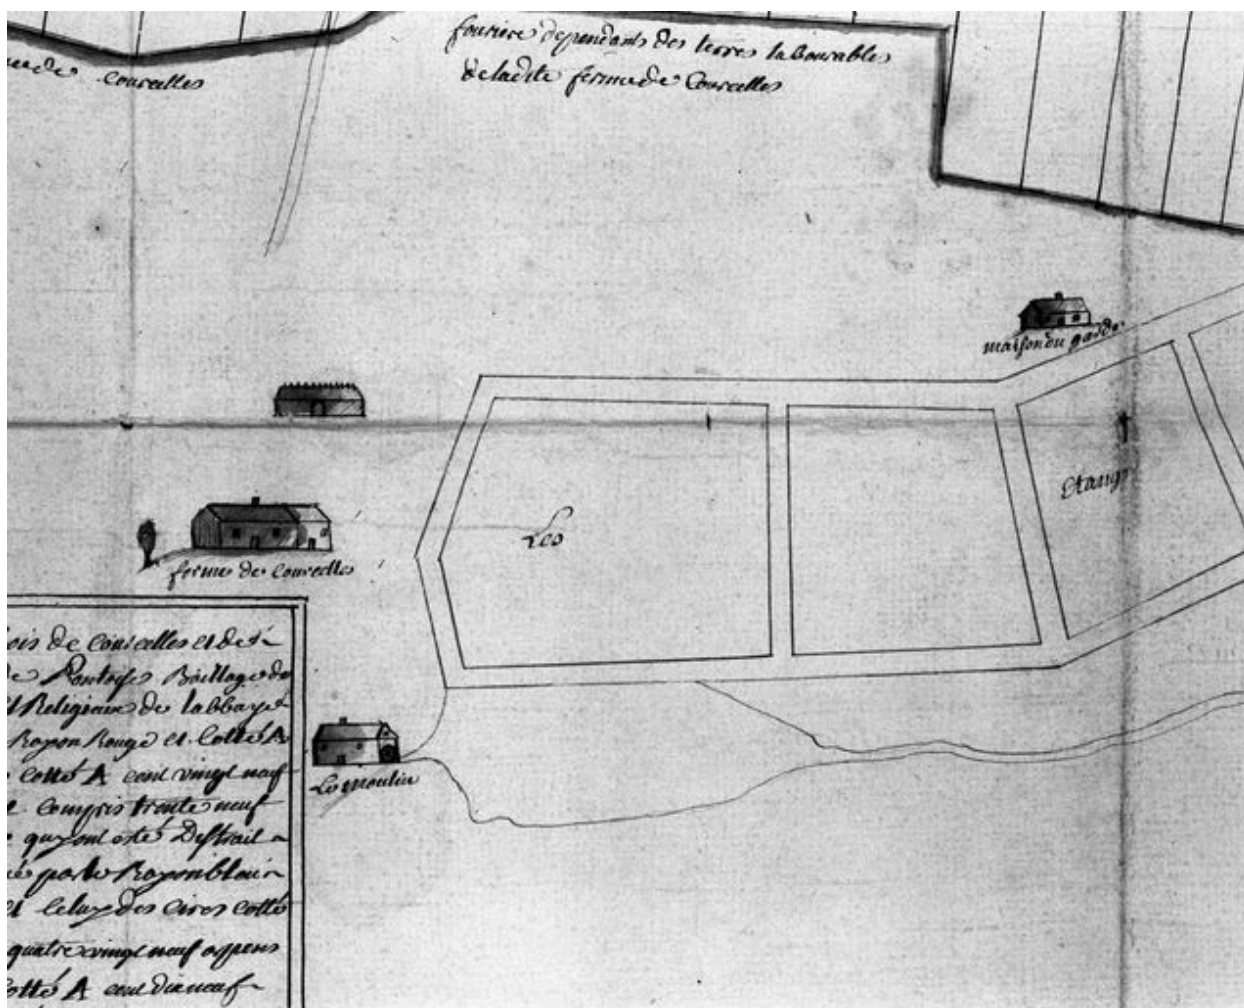 fouriere dependants des terres labourables
de ladite ferme de Courcelles
de courcelles
maison du garde
Etangs
Les
ferme de courcelles
Le moulin
ois de courcelles et de
de Pontoise Bailliage de
Religieux de labbaye
Rayon Rouge et Cotté A
cotté A cent vingt neuf
compris trente neuf
quy ont esté Distrait
par le Rayon bleu
et celuy des cotté
quatre vingt neuf arpens
Cotté A cent dix neuf